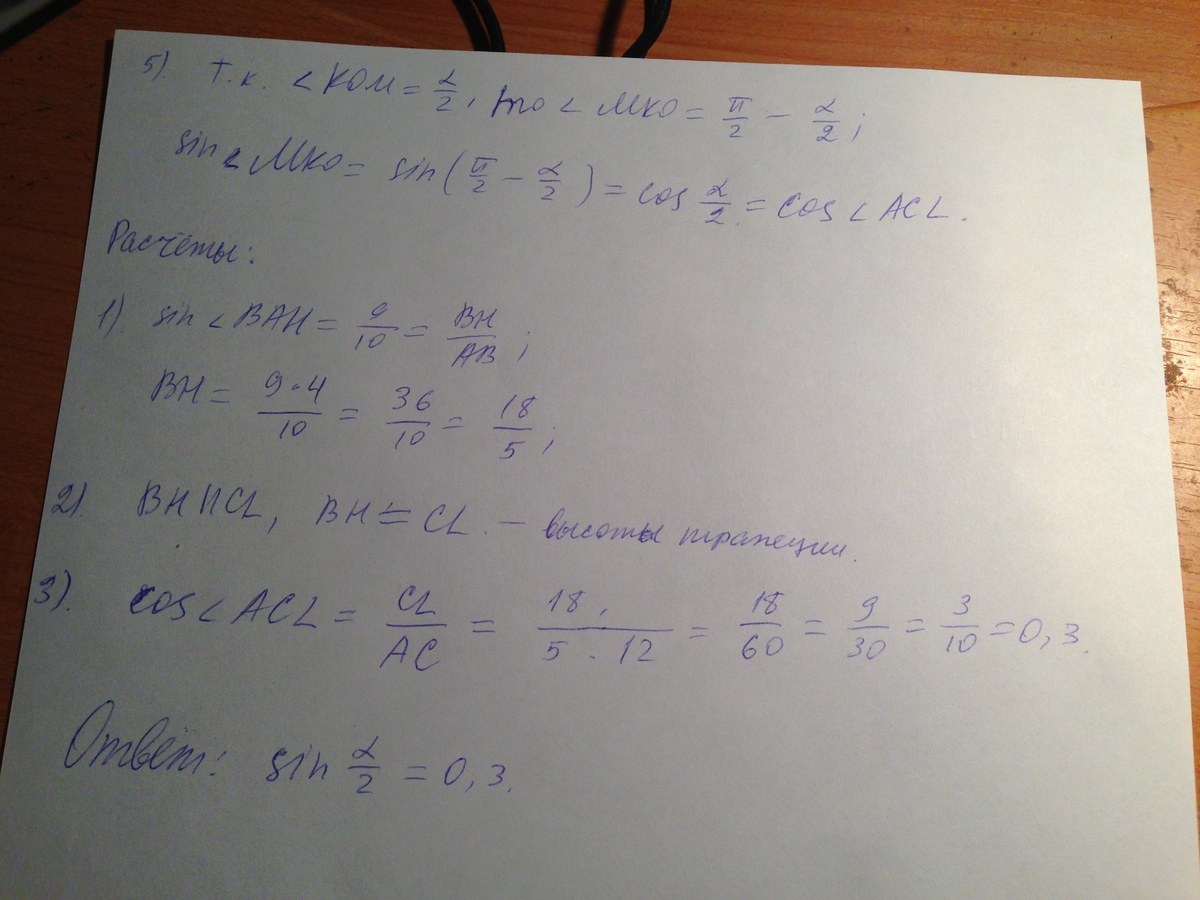 5) Т.к. ∠КОМ = α/2, то ∠МКО = π/2 − α/2;
sin∠МКО = sin(π/2 − α/2) = cos α/2 = cos∠ACL.
Расчёты:
1). sin∠BAH = 9/10 = BH/AB;
BH = 9·4/10 = 36/10 = 18/5;
2). BH II CL, BH = CL. – высоты трапеции.
3). cos∠ACL = CL/AC = 18·/5·12 = 18/60 = 9/30 = 3/10 = 0,3.
Ответ: sin α/2 = 0,3.